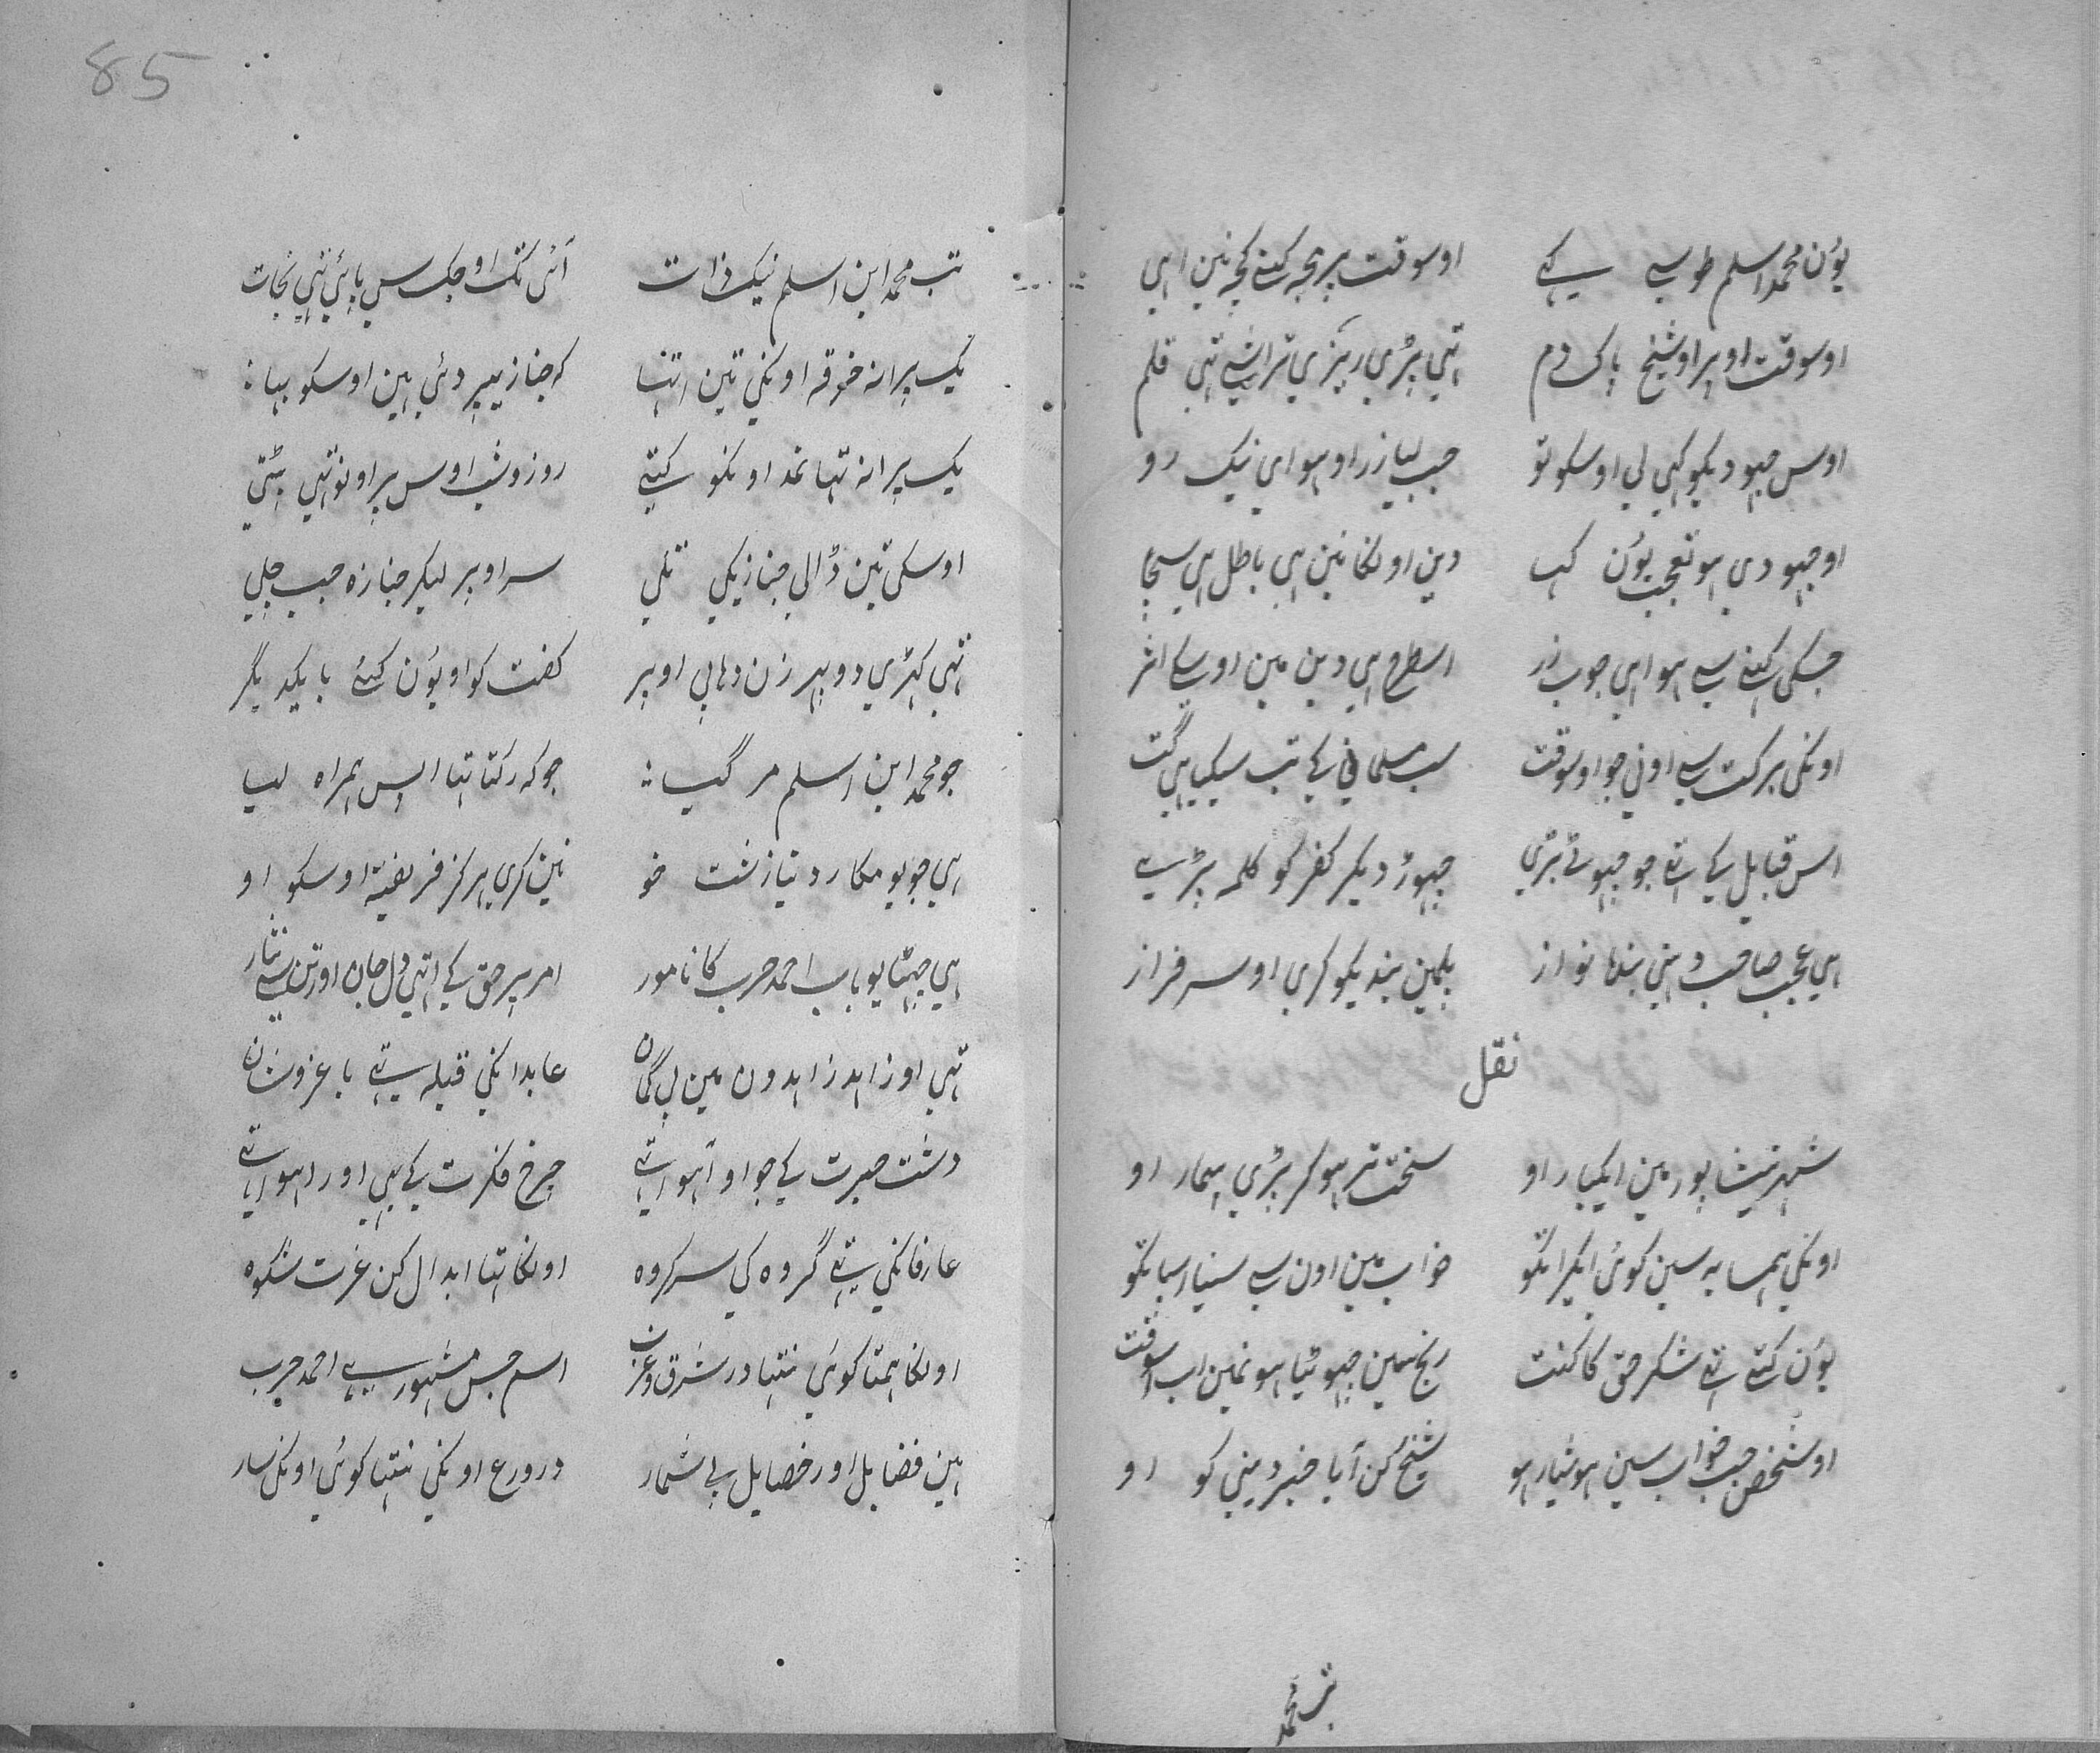 یوں محمد اسلم طوسی سے کہے اوسوقت پر مجہ کنے کچہ نین اہی
اوسوقت اوپر او شیخ پاک دم تہی پڑی ریزی تراشے تہی قلم
اوس جہود یکو کہی لی اوسکو تو جب لیا زر او ہوا ای نیک رو
او جہودی ہو تعجب یوں کہا دین اونکا نین ہی باطل ہی سچا
جسکی کہنے سے ہوا ہی جوب زر اسطرح ہی دین مین اوسکے اثر
اونکی برکت سے اونی جو اوسوقت سب مسلمانی کے تب سیکیا ہی گت
اس قبایل کے اتھے جو چہوتے بڑی چہوڑ دیکر کفر کو کلمہ پڑے
ہی عجب صاحب دہنی بندا نواز پلمین بندیکو کری او سرفراز
نقل
شہر نیشاپور مین ایکبار او سخت تر ہو کر پڑی بیمار او
اونکی ہمسایہ سین کوئی ایکرا تکو خواب مین اون سے سنیا اس باتکو
یوں کہتے اتھے شکر حق کا کہنت رنج سین چہوٹیا ہو نمین اب اسوقت
او شخص جب خواب سین ہوشیار ہو شیخ کن آیا خبر دینی کو او
تب محمد
85
تب محمد ابن اسلم نیک ذات آئی تک او جک سی پائی تہی نجات
یک پرانہ خرقہ اونکی تین اتہا کہ جنازیپر دئی ہین اوسکو بہا
یک پرانہ تہا نمد اونکو کتے روز و شب اوس پر او نو تہی بٹتی
اوسکی تین ڈالی جنازیکی تلی سر اوپر لیکر جنازہ جب چلی
تہی کہڑی دو پیر زن دہاپی اوپر کفت کو او یوں کئے با یکدیگر
جو محمد ابن اسلم مر گیا جو کہ رکتا تہا اپس ہمراہ لیا
ہی جو یو مکار دنیا زشت خو نین کری ہرگز فریفتہ اوسکو او
ہی جہتا یو باب احمد حرب کا نامور امر پر حق کے اتہی دل جان اور تن سے نثار
تہی او زاہد زاہدون مین بی گمان عابدانکی قبلہ تھے با عز و شان
دشت حیرت کے جو او آہو اتھے چرخ فکرت کے بہی او راہو اتھے
عارفانکی تھے گروہ کی سرکروہ اونکا تہا ابدال کن عزت شکوہ
اونکا ہمتا کوئی نتہا در شرق و غرب اسم جس مشہور ہے احمد حرب
ہین فضایل اور خصایل بی شمار در ورع اونکی نتہا کوئی اونکی سار